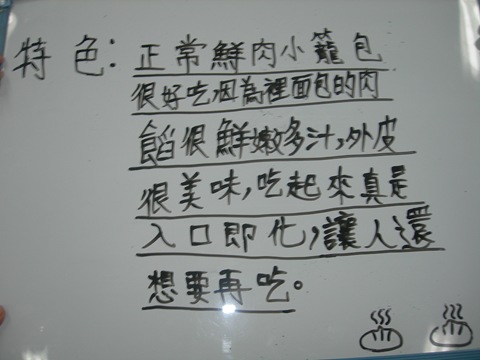 特色：正常鮮肉小籠包
很好吃,因為裡面包的肉
餡很鮮嫩多汁,外皮
很美味,吃起來真是
入口即化,讓人還
想要再吃。